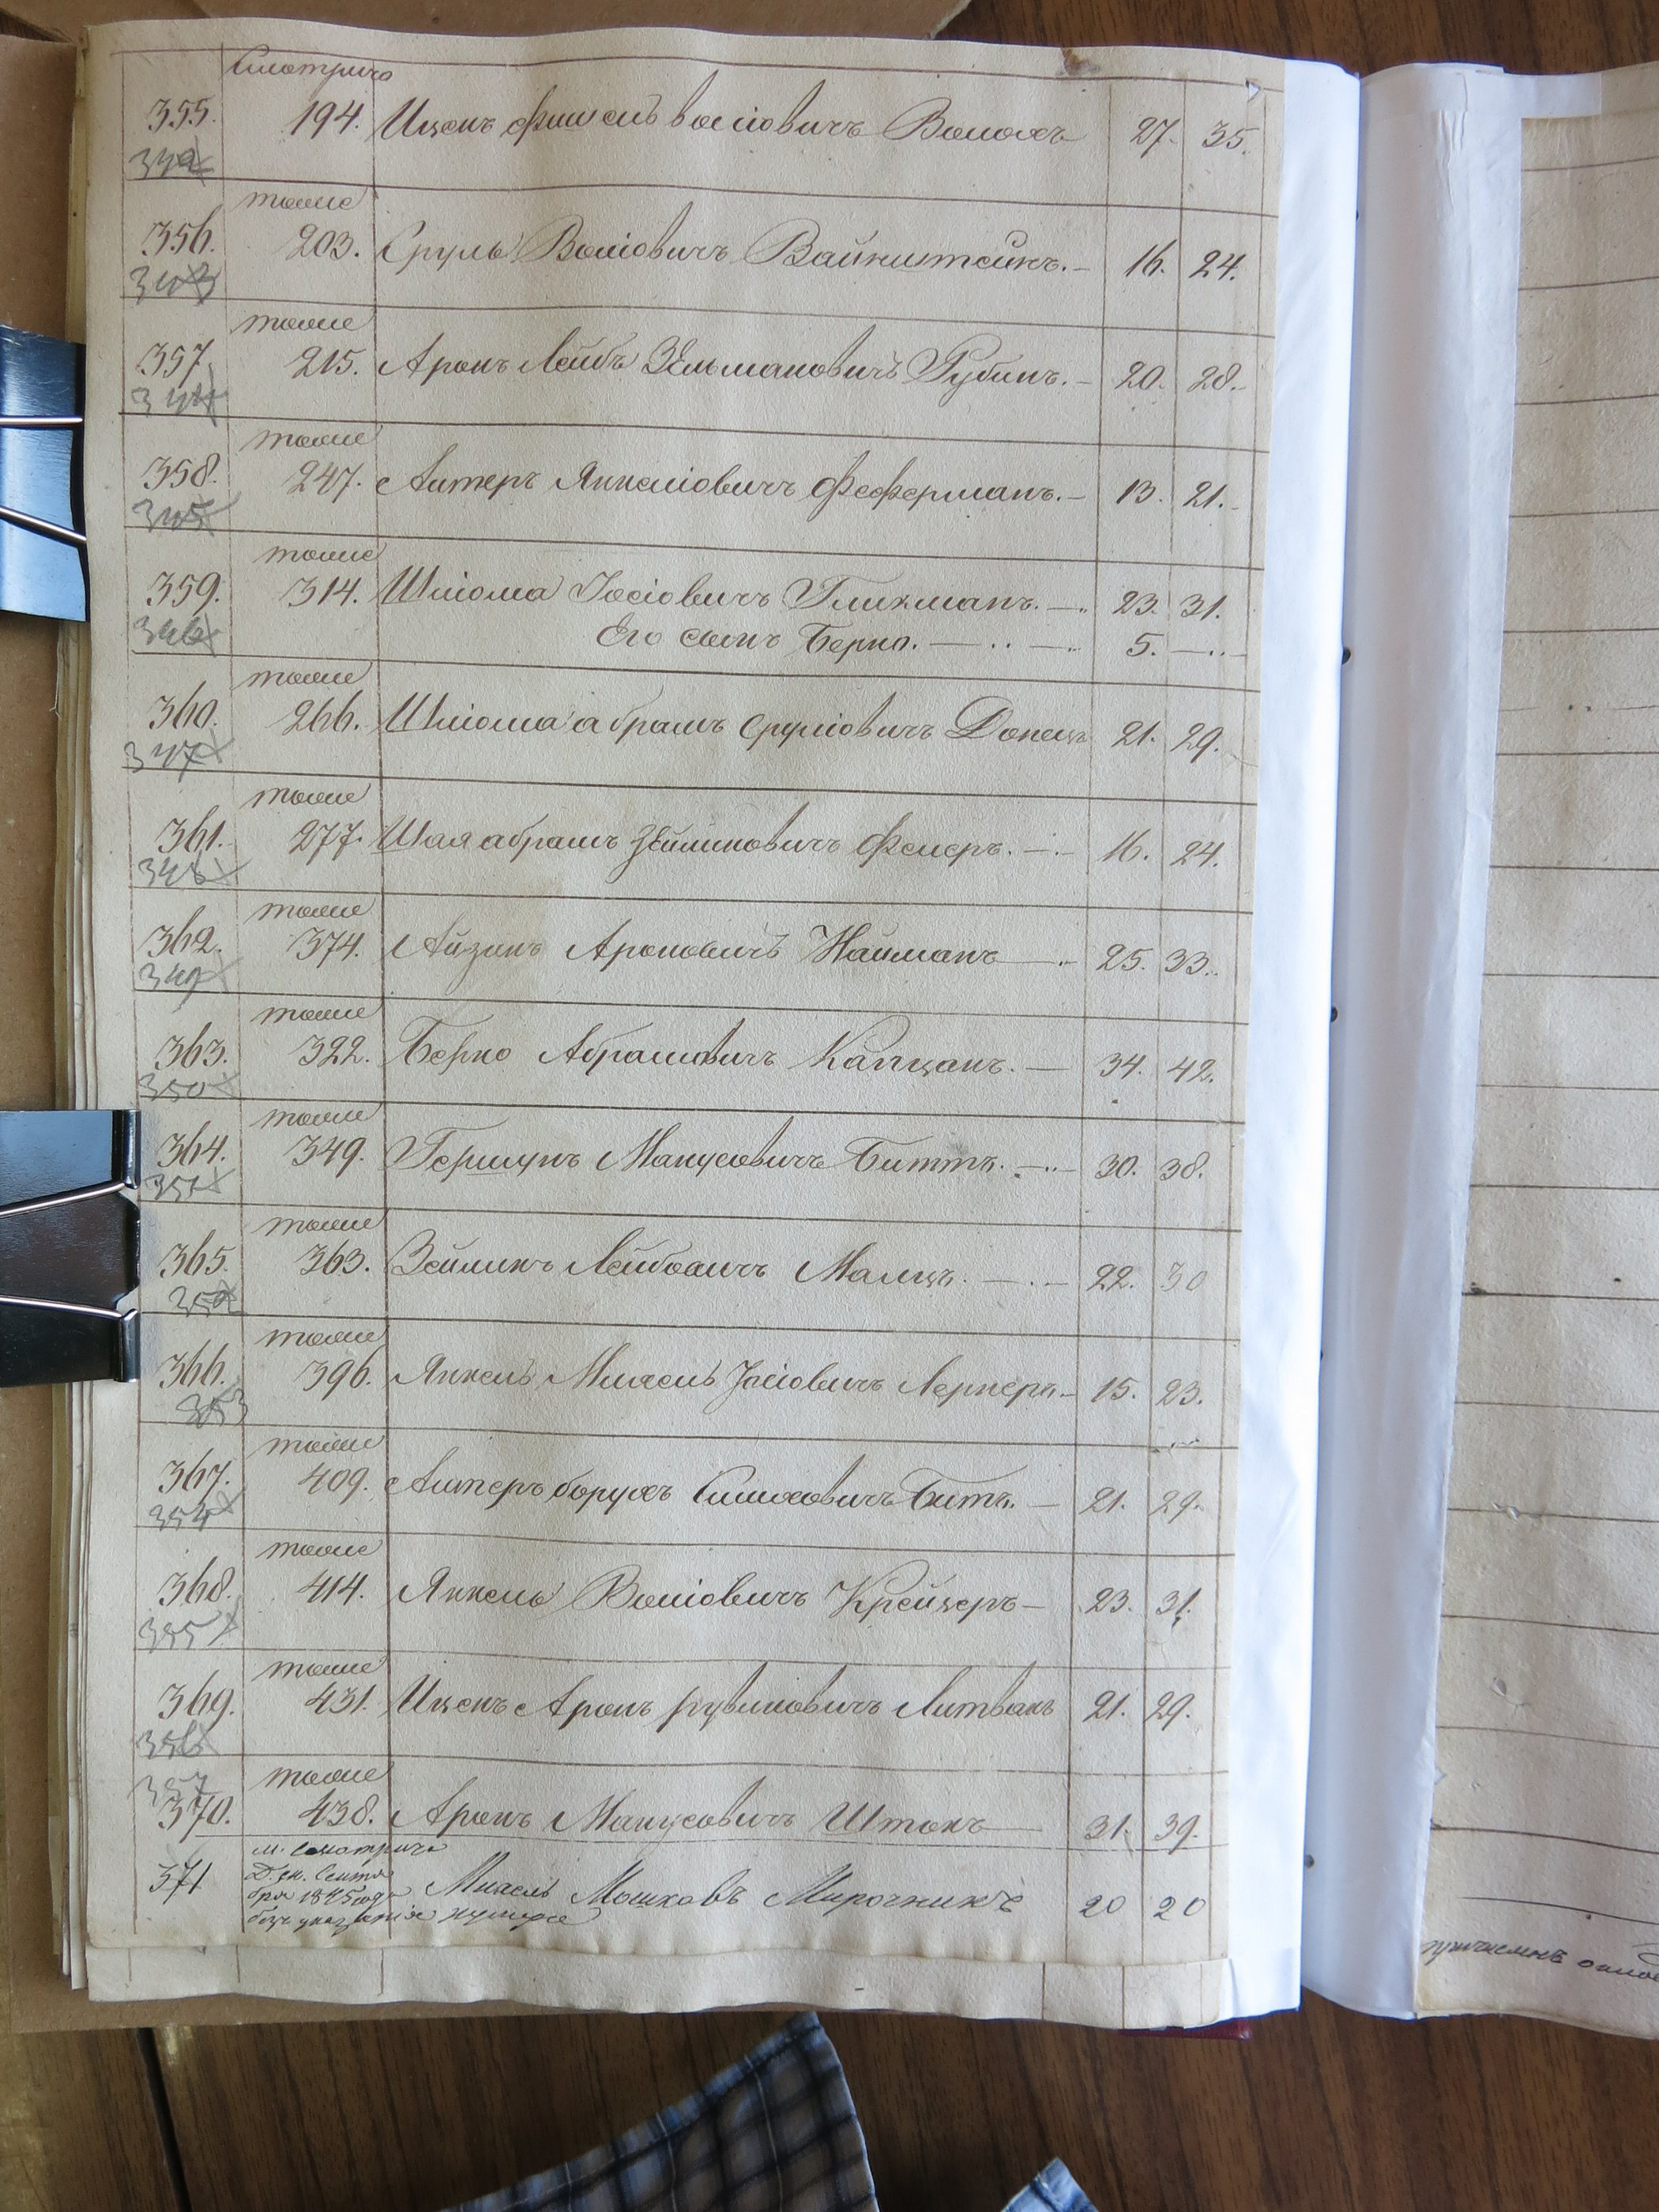 Смотричь
355. 194. Ицекъ Фишель Волiовичъ Волохъ 27. 35.
342
тоже
356. 203. Сруль Волiовичъ Вайнштейнъ. 16. 24.
343
тоже
357. 215. Аронъ Лейбъ Зельмановичъ Рубинъ. 20. 28.
344
тоже
358. 247. Алтеръ Янкелiовичъ Феферманъ. 13. 21.
345
тоже
359. 314. Шлiома Iосiовичъ Гликманъ. 23. 31.
346 Его сынъ Берко. 5.
тоже
360. 266. Шлiома абрамъ Срулiовичъ Донецъ 21. 29.
347
тоже
361. 277. Шая абрамъ Зейликовичъ Фелеръ. 16. 24.
348
тоже
362. 374. Айзикъ Ароновичъ Найманъ 25. 33.
349
тоже
363. 322. Берко Абрамовичъ Капцанъ. 34. 42.
350
тоже
364. 349. Гершунъ Манусовичъ Биттъ. 30. 38.
351
тоже
365. 363. Зейликъ Лейбовичъ Малицъ. 22. 30
352
тоже
366. 396. Янкель Михель Iосiовичъ Лернеръ 15. 23.
353
тоже
367. 409. Алтеръ борухъ Симховичъ Битъ. 21. 29.
354
тоже
368. 414. Янкель Волiовичъ Крейцеръ 23. 31.
355
тоже
369. 431. Ицекъ Аронъ рувиновичъ Литвакъ 21. 29.
356
357 тоже
370. 438. Аронъ Манусовичъ Штокъ 31. 39.
м. Смотричь
371 Сентя Михель Мошковъ Мирочникъ 20 20
бря 1845 года
безъ указанiя нумера
причисленъ